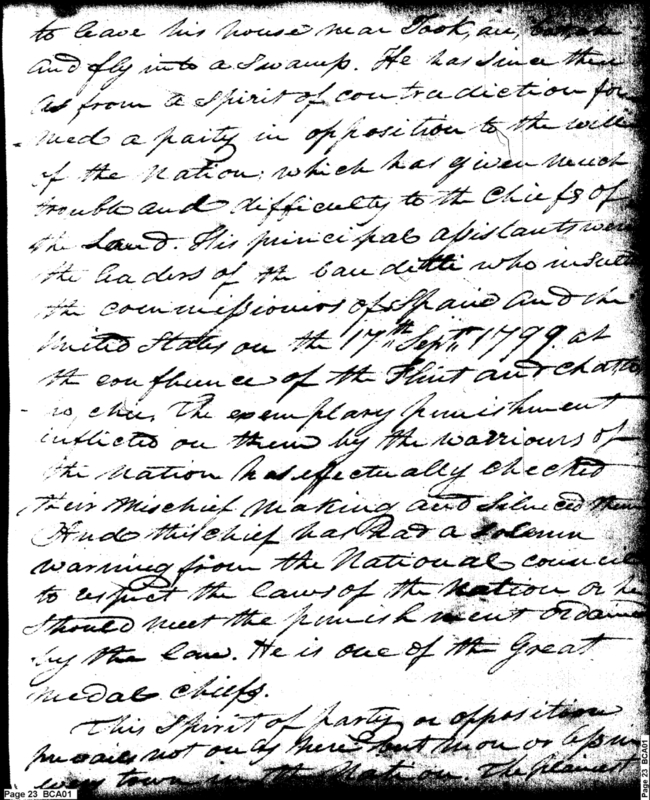 to leave his house near Took,au,bat,che
and fly into a Swamp. He has since then
as from a spirit of contradiction for
med a party in opposition to the will
of the Nation, which has given much
trouble and difficulty to the Chiefs of
the Land. His principal assistants were
the leaders of the banditti who insulted
the commissioners of Spain and the
United States on the 17th Sept. 1799 at
the confluence of the Flint and Chatto
ho,chee. The exemplary punishment
inflicted on them by the warriours of
the Nation has effectually checked
their Mischief making and Silenced them
And this chief has had a solemn
warning from the National council
to respect the laws of the Nation or he
should meet the punishment ordained
by the law. He is one of the Great
medal chiefs.
This spirit of party or opposition
prevails not only here but more or less in
every town in the Nation. The plainest
Page 23 BCA01
Page 23 BCA01